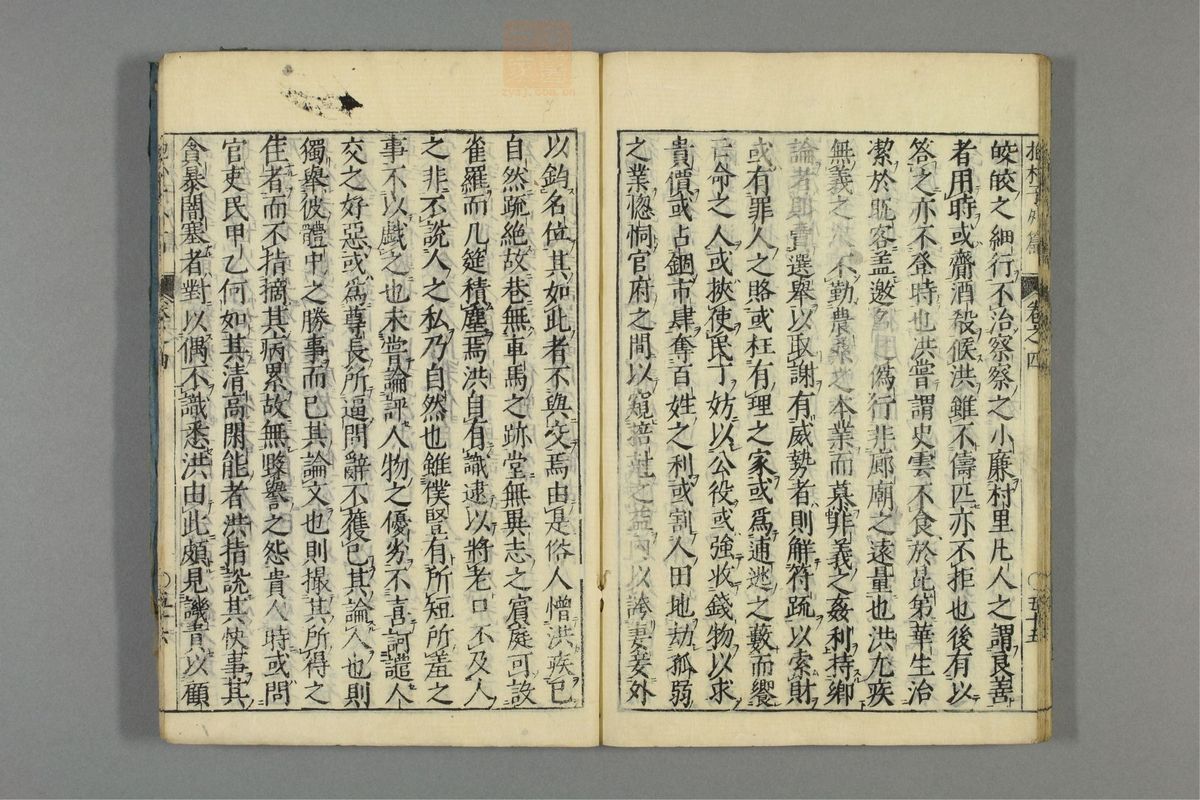 皎皎之細行不治察察之小廉村里凡人之謂良善
者用時或齎酒殽候洪雖不儔匹亦不拒也後有以
答之亦不登時也洪嘗謂史雲不食於昆弟華生治
潔於昵客蓋邀名之僞行非廊廟之遠量也洪尤疾
無義之 不勤農桑之本業而慕非義之姦利持鄉
論者則賣選舉以取謝有威勢者則解符疏以索財
或有罪人之賂或枉有理之家或爲逋逃之藪而饗
亡命之人或挾使民丁妨以公役或強收錢物以求
貴價或占錮市肆奪百姓之利或割人田地劫孤弱
之業惚恫官府之間以窺掊 之益内以誇妻妾外
以釣名位其如此者不與交焉由是俗人憎洪疾已
自然疏絶故巷無車馬之跡堂無異志之賓庭可設
雀羅而几筵積塵焉洪自有識逮以將老口不及人
之非不說人之私乃自然也雖僕豎有所短所羞之
事不以戲之也未嘗論評人物之優劣不喜訶譴人
交之好惡或爲尊長所逼問辭不獲已其論人也則
獨舉彼體中之勝事而已其論文也則撮其所得之
佳者而不指摘其病累故無毀譽之怨貴人時或問
官吏民甲乙何如其清高閑能者洪指說其快事其
貪暴闇塞者對以偶不識悉洪由此頗見譏責以顧
抱朴子外篇 卷之四 五十五
卷之四